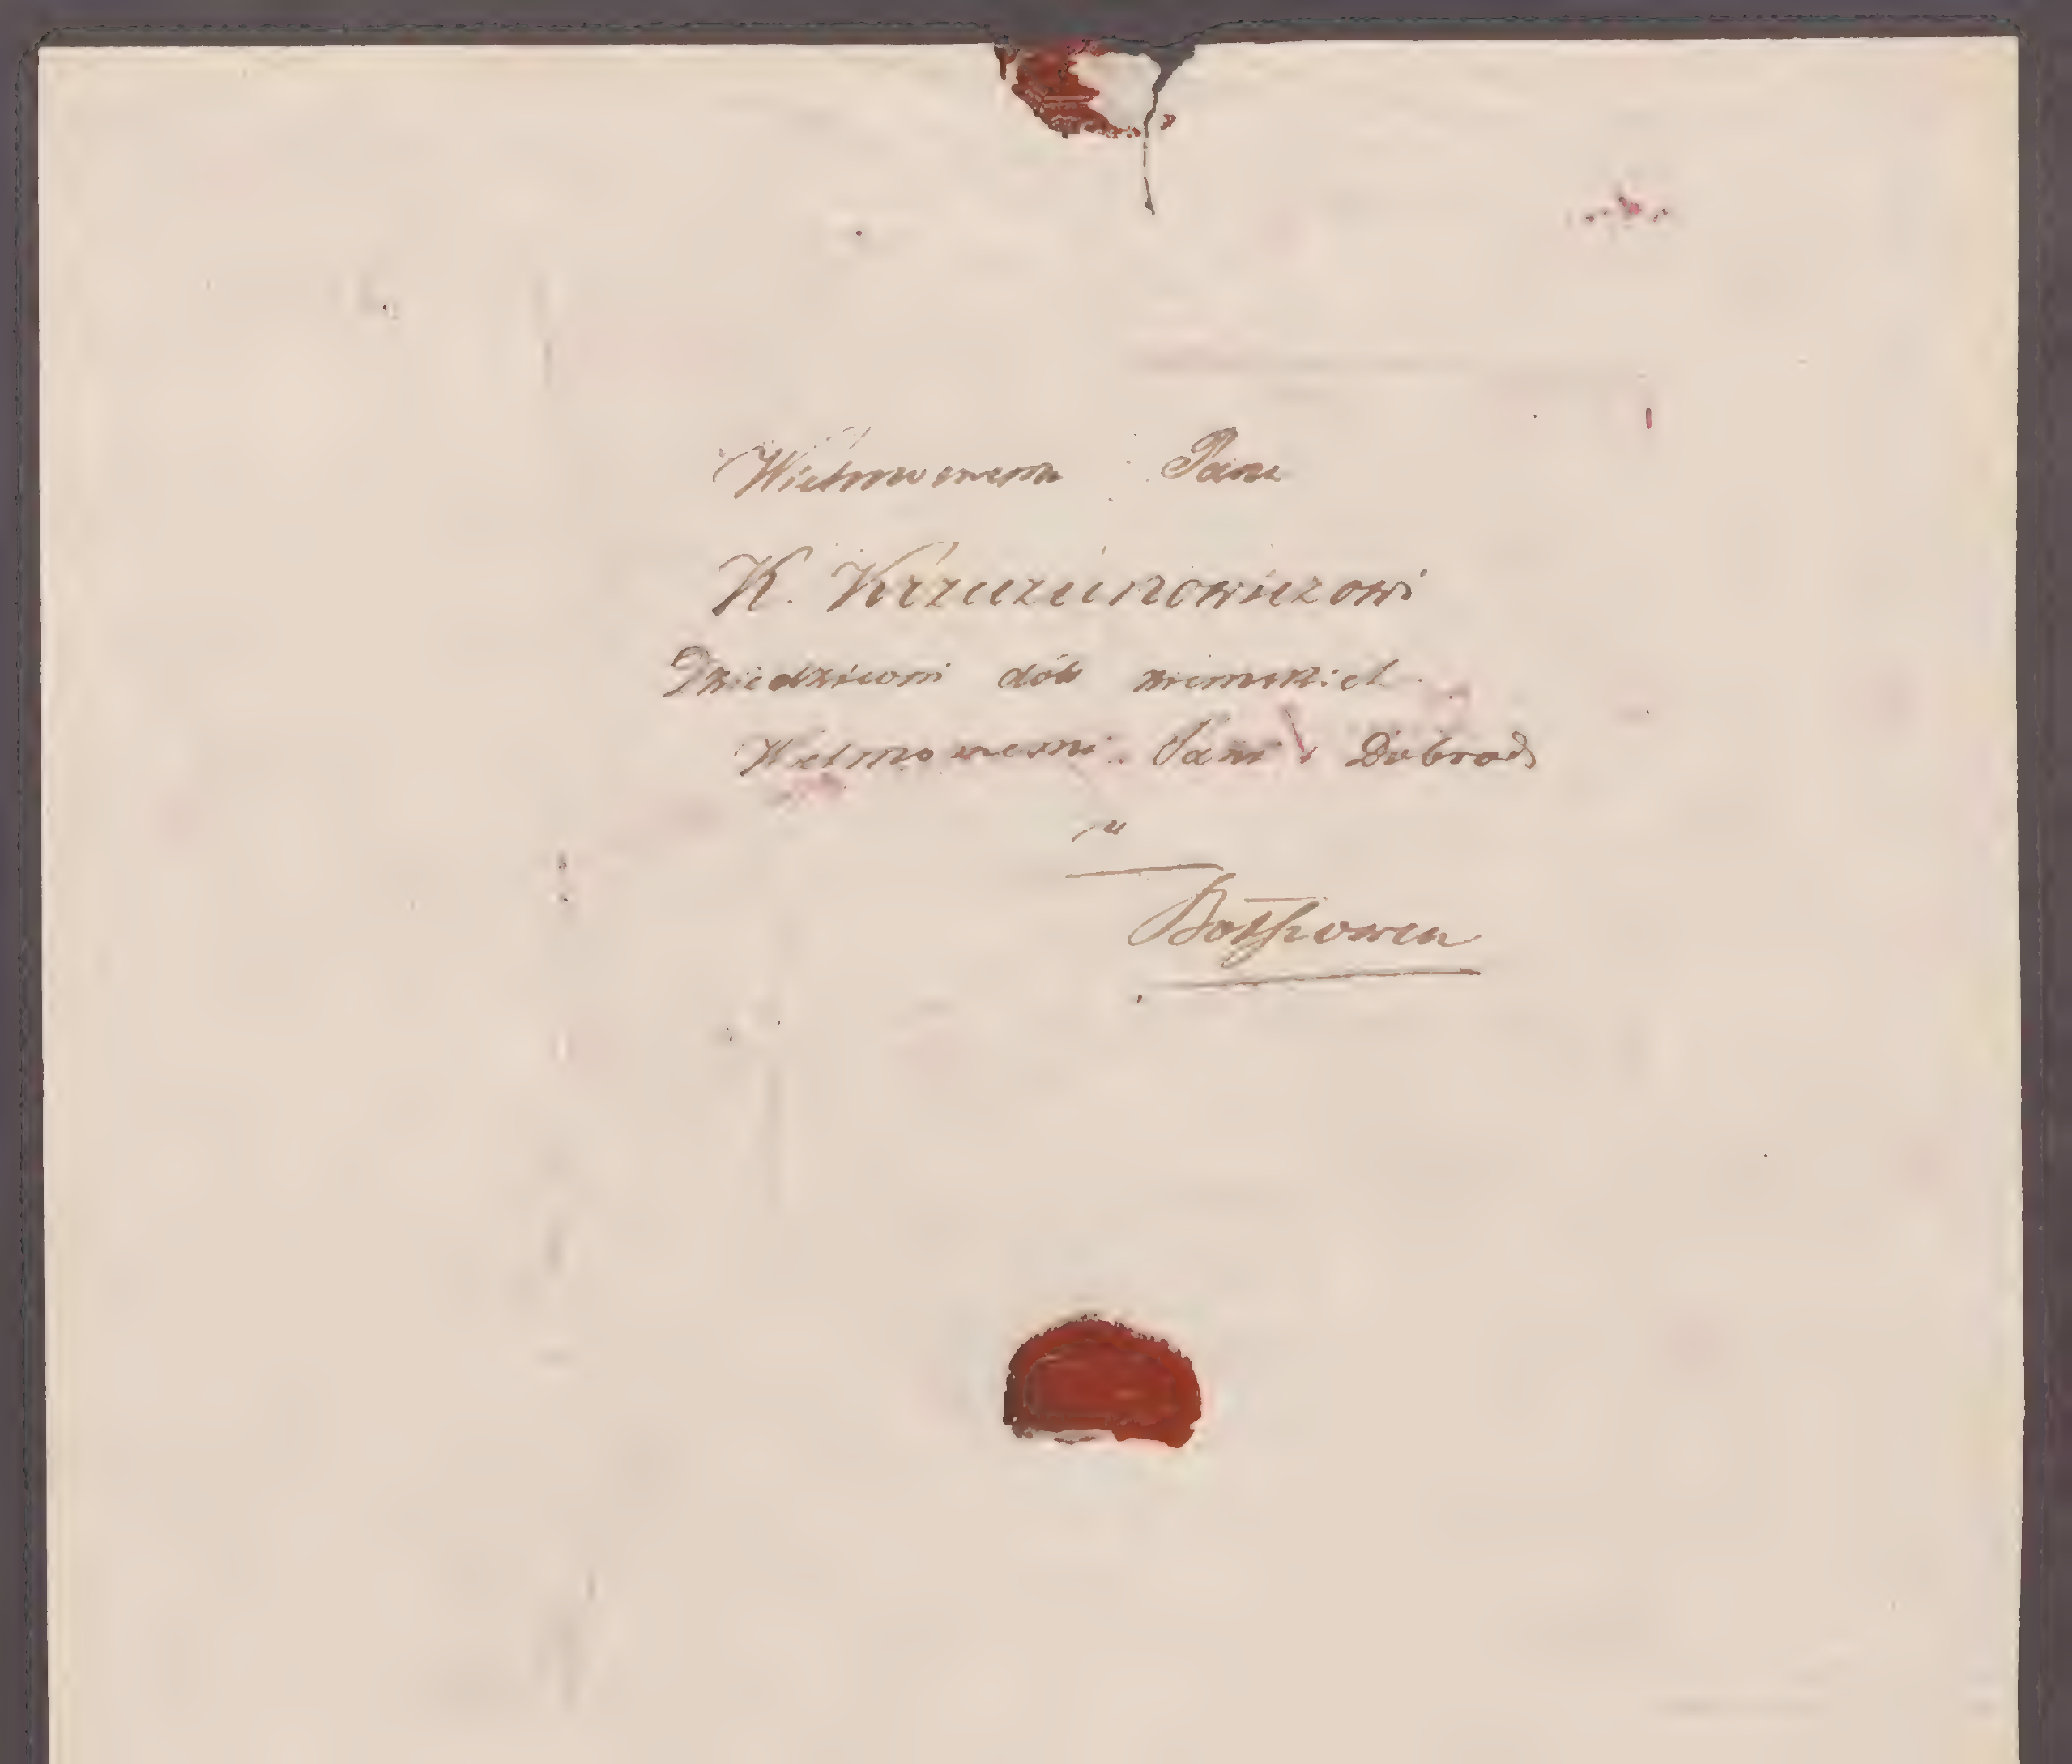 Wielmożnemu Panu
K. Krzeczunowiczowi
Dziedzicowi dób ziemskich
Wielmożnemu Panu Dobrod
w